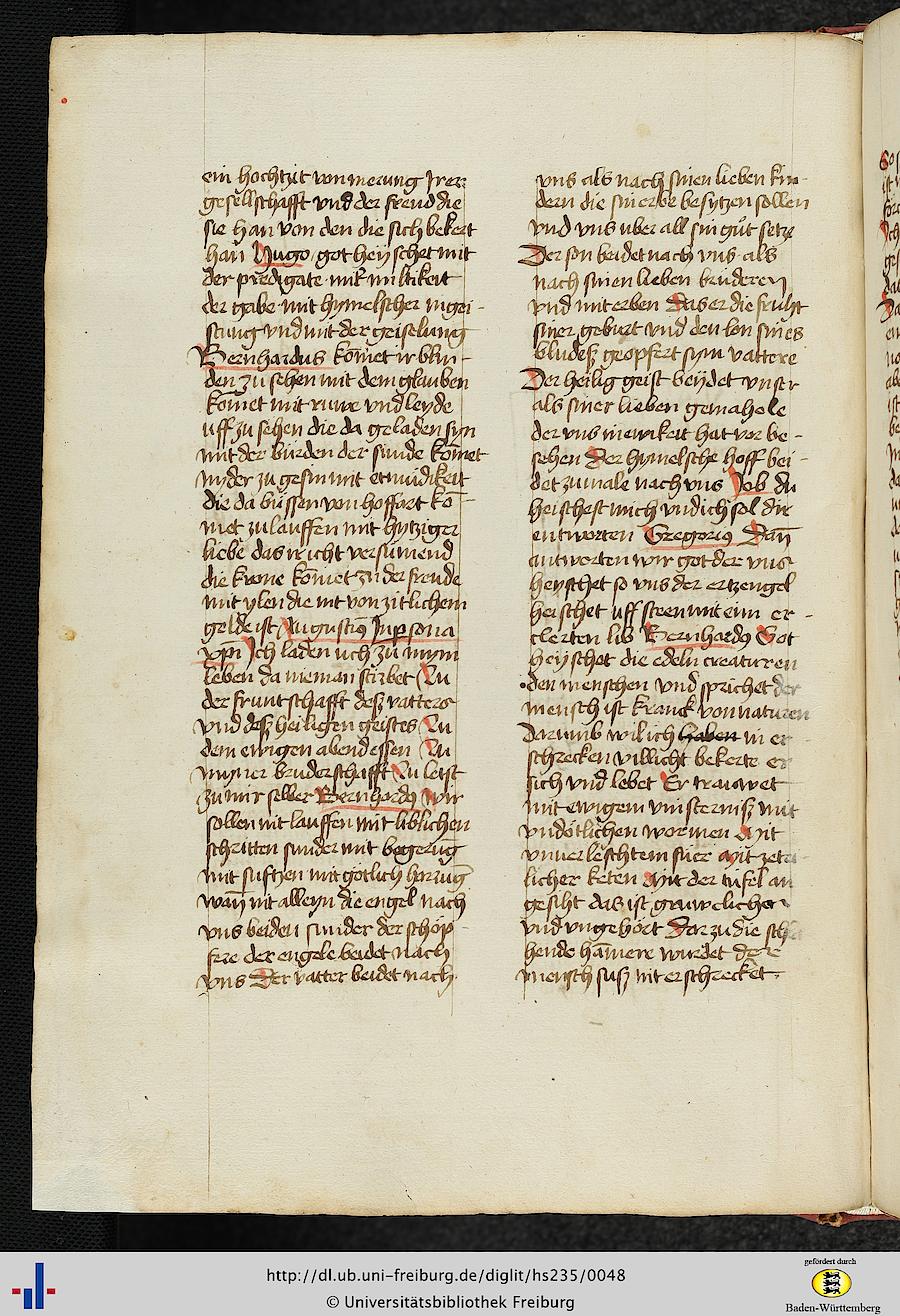 ein hochtzit von merung irer
gesellschafft vnd der freud die
sie han von den die sich bekert
han Hugo got heyschet mit
der predigate mit miltikeit
der gabe mit hymelscher ingei-
stung vnd mit der geiselung
Bernhardus komet ir blin-
den zu sehen mit dem glauben
komet mit ruwe vnd leyde
uff zu sehen die da geladen syn
mit der bürden der sunde komet
nyder zu mit etmüdikeit
die da büssen von hoffart ko-
met zu lauffen mit hytziger
liebe das ir icht versumend
die krone komet zu der freude
mit ylen die nit von zitlichem
gelde ist Augustinus In persona
xpi Ich laden uch zu mym
leben da nieman stirbet Zu
der fruntschafft deß vatters
vnd deß heiligen geistes Zu
dem ewigen abend essen Zu
myner bruderschafft Zu letst
zu mir selber Bernhardus Wir
sollen nit lauffen mit liblichen
schritten sunder mit begerung
mit suftzen mit götlich
wan nit alleyn die engel nach
vns beiden sunder der schöp-
fere der engele beidet nach
vns Der vatter beidet nach
vns als nach sinen lieben kin-
dern die sin erbe besytzen sollen
vnd vns uber all sin gut setze
Der son beidet nach vns als
nach sinen lieben brüderen
vnd mit erben Das er die frucht
siner geburt vnd den lon sines
bludes geopfert sym vattere
Der heilig geist beydet vnser
als siner lieben gemahele
der vns in ewikeit hat vor be-
sehen Der hymelsche hoff bei-
det zumale nach vns Job du
heischest mich vnd ich sol dir
entworten Gregorius Dan
antworten wir got der vns
heyschet so vns der ertzengel
heischet uff steen mit eim er-
clerten lib Bernhardus Got
heyschet die edeln creaturen
den menschen vnd sprichet der
mensch ist kranck von naturen
Darumb wil ich haben in er
schrecken villicht bekerte er
sich vnd lebet Er trauwet
mit ewigem vinsterniß mit
vndötlichen wormen Mit
vnuerleschtem füre Mit
licher keten Mit der tüfel an
gesiht das ist gruwelicher
vnd vngehört Darzu die
hende hamere würdet
mensch suß nit erschrecket
http://dl.ub.uni-freiburg.de/diglit/hs235/0048
© Universitätsbibliothek Freiburg
gefördert durch
Baden-Württemberg